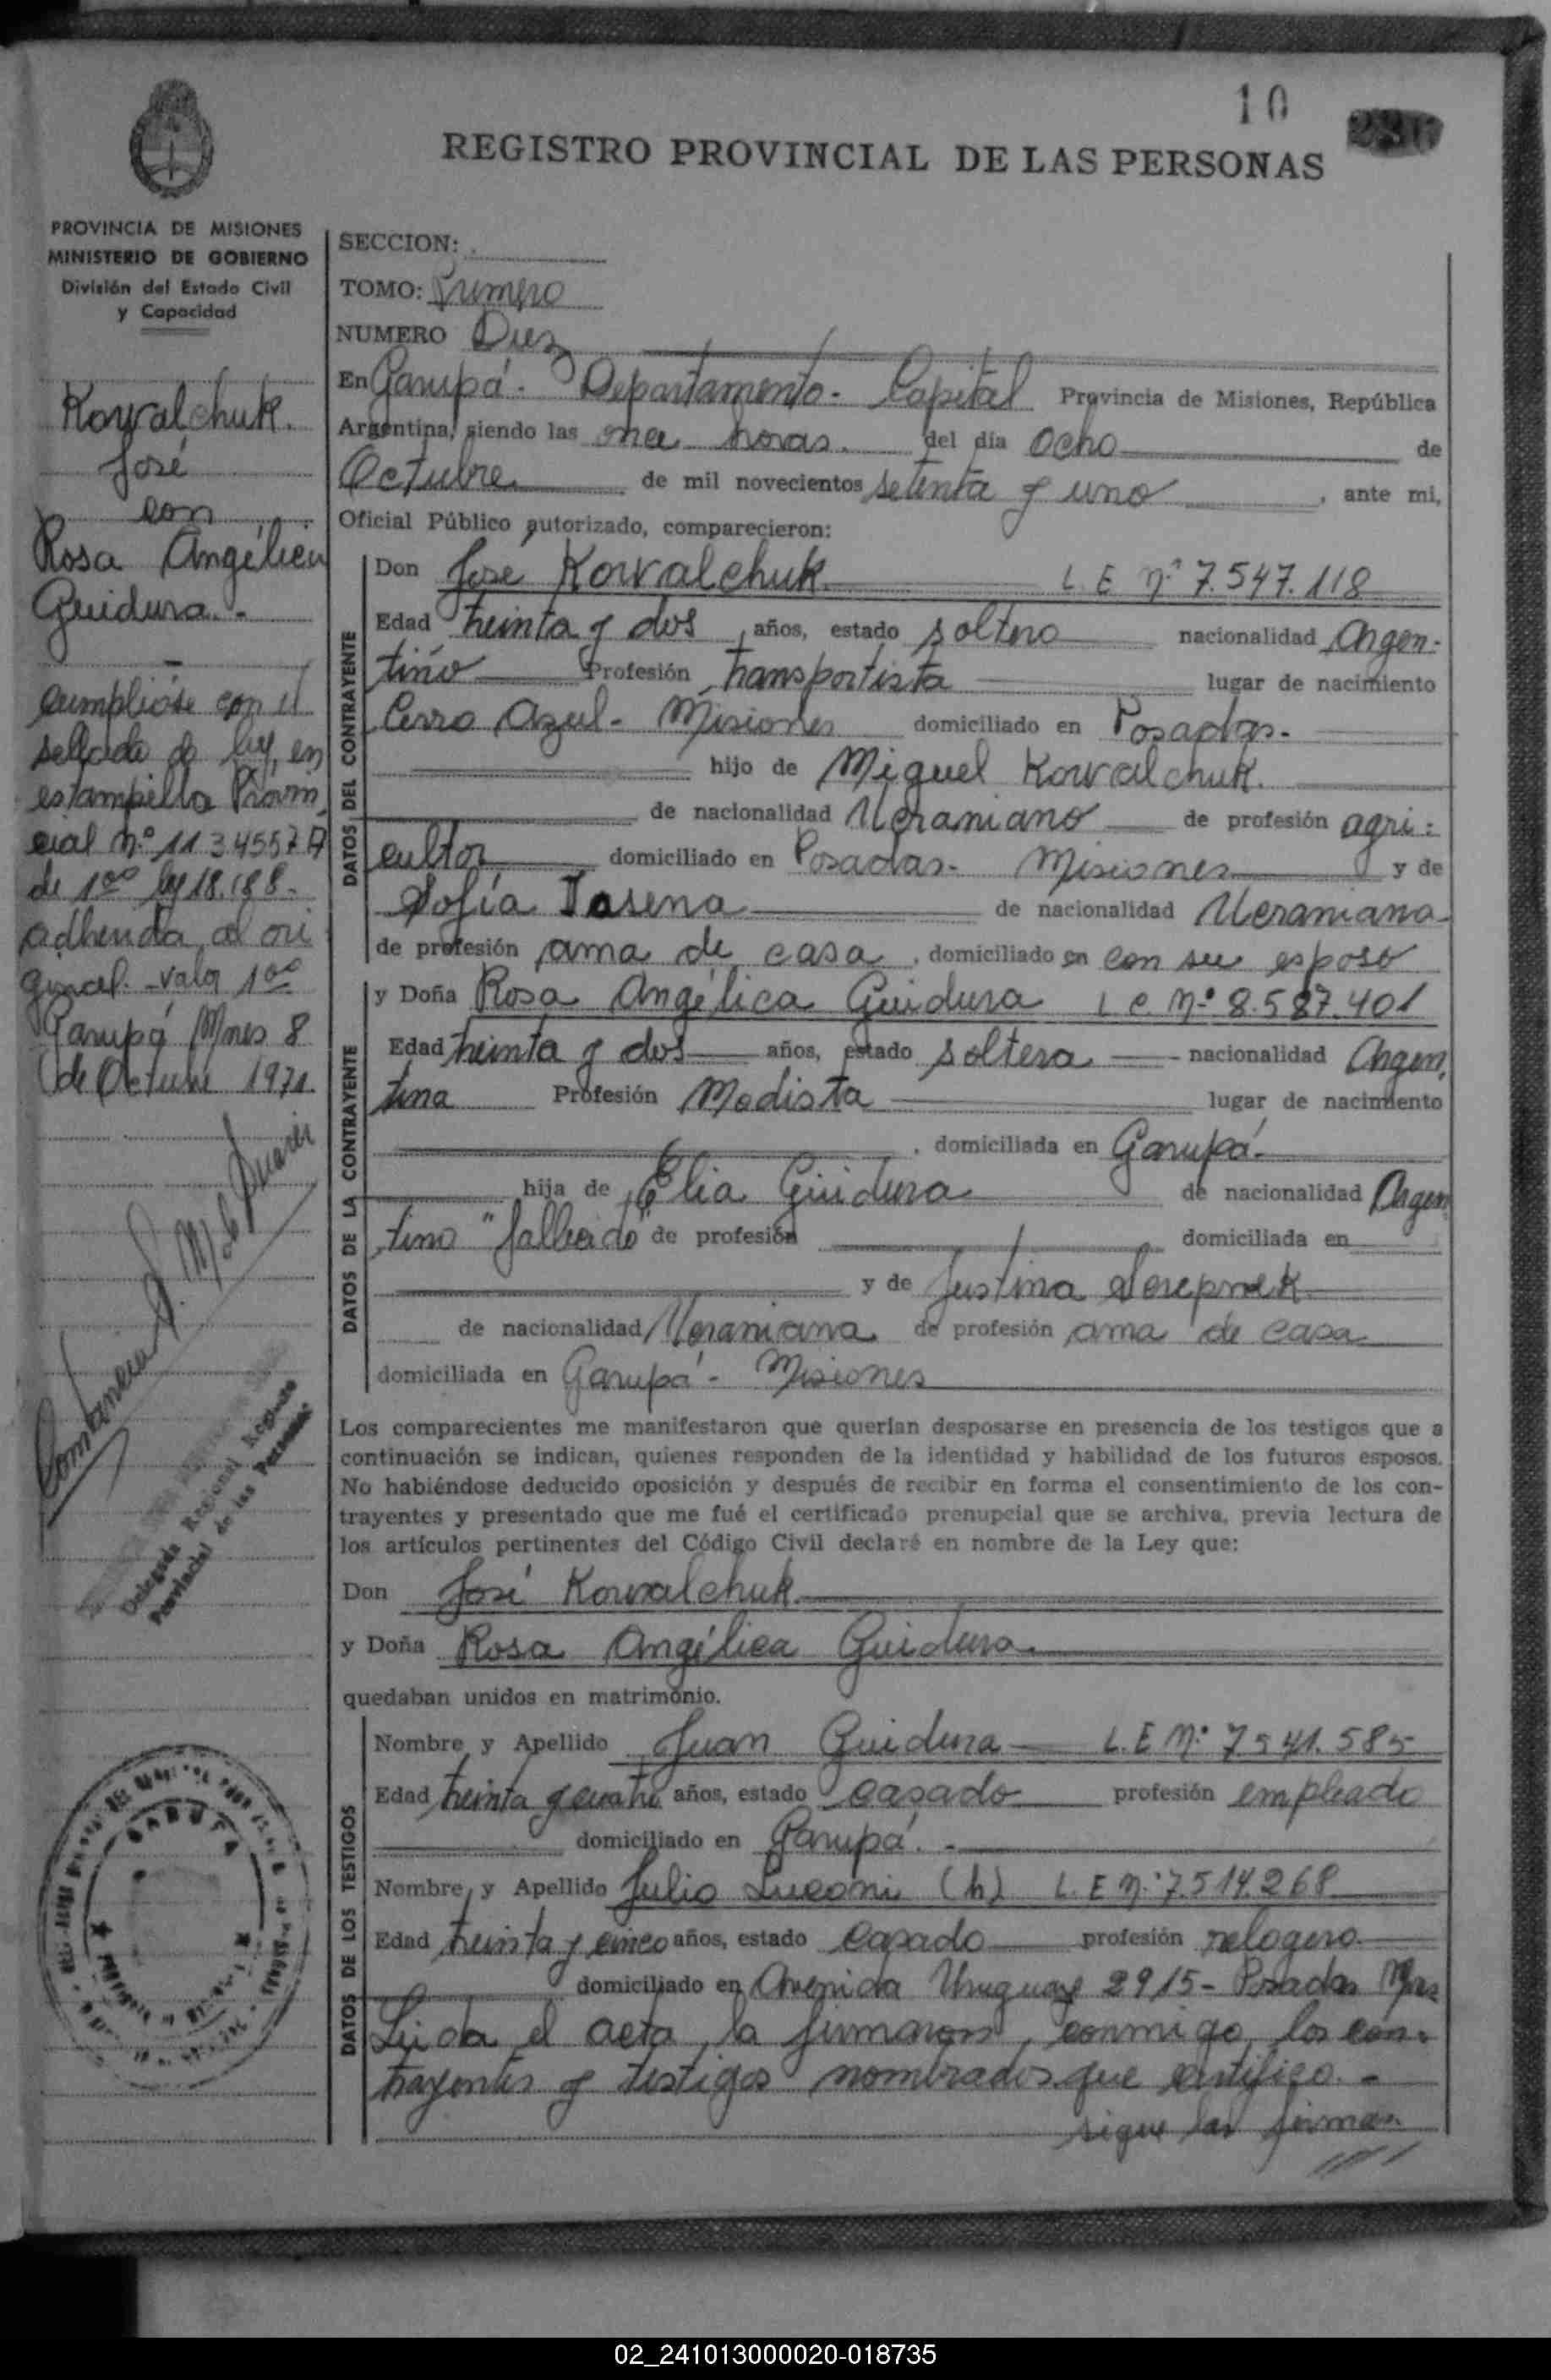 10
236
REGISTRO PROVINCIAL DE LAS PERSONAS
PROVINCIA DE MISIONES
MINISTERIO DE GOBIERNO
División del Estado Civil
y Capacidad
Kowalchuk
José
con
Rosa Angélica
Guidura.-
Cumplióse con el
sellado de ley, en
estampilla Provin
cial Nº 1134557 A
de 1oo ley 18.188-
adherida al ori
ginal. - Valor 1oo
Garupá Mnes 8
de Octubre 1971
Delegada Regional Registro
Provincial de las Personas
GARUPA
SECCION:
TOMO: Primero
NUMERO Diez
En Garupá.- Departamento- Capital Provincia de Misiones, República
Argentina, siendo las once horas. del día Ocho de
Octubre de mil novecientos setenta y uno, ante mi,
Oficial Público autorizado, comparecieron:
DATOS DEL CONTRAYENTE
Don José Kowalchuk L E Nº 7.547.118
Edad treinta y dos años, estado soltero nacionalidad Argen-
tino Profesión transportista lugar de nacimiento
Cerro Azul- Misiones domiciliado en Posadas.-
hijo de Miguel Kowalchuk.
de nacionalidad Ucraniano de profesión agri-
cultor domiciliado en Posadas- Misiones y de
Sofía Tasena de nacionalidad Ucraniana
de profesión ama de casa, domiciliado en con su esposo
DATOS DE LA CONTRAYENTE
y Doña Rosa Angélica Guidura L C Nº 8.587.401
Edad treinta y dos años, estado soltera nacionalidad Argen
tina Profesión Modista lugar de nacimiento
, domiciliada en Garupá.
hija de Elia Guidura de nacionalidad Argen
tino "fallecido" de profesión domiciliada en
y de Justina
de nacionalidad Ucraniana de profesión ama de casa
domiciliada en Garupá- Misiones
Los comparecientes me manifestaron que querían desposarse en presencia de los testigos que a
continuación se indican, quienes responden de la identidad y habilidad de los futuros esposos.
No habiéndose deducido oposición y después de recibir en forma el consentimiento de los con-
trayentes y presentado que me fué el certificado prenupcial que se archiva, previa lectura de
los artículos pertinentes del Código Civil declaré en nombre de la Ley que:
Don José Kowalchuk
y Doña Rosa Angélica Guidura
quedaban unidos en matrimonio.
DATOS DE LOS TESTIGOS
Nombre y Apellido Juan Guidura L.E Nº 7541.585
Edad treinta y cuatro años, estado casado profesión empleado
domiciliado en Garupá. -
Nombre y Apellido Julio Luconi (h) L.E Nº 7.514.268
Edad treinta y cinco años, estado casado profesión relogero
domiciliado en Avenida Uruguay 2915- Posadas Mnes
Leida el acta, la firmaron, conmigo, los con-
trayentes y testigos nombrados que certifico. -
sigue las firmas
02_241013000020-018735